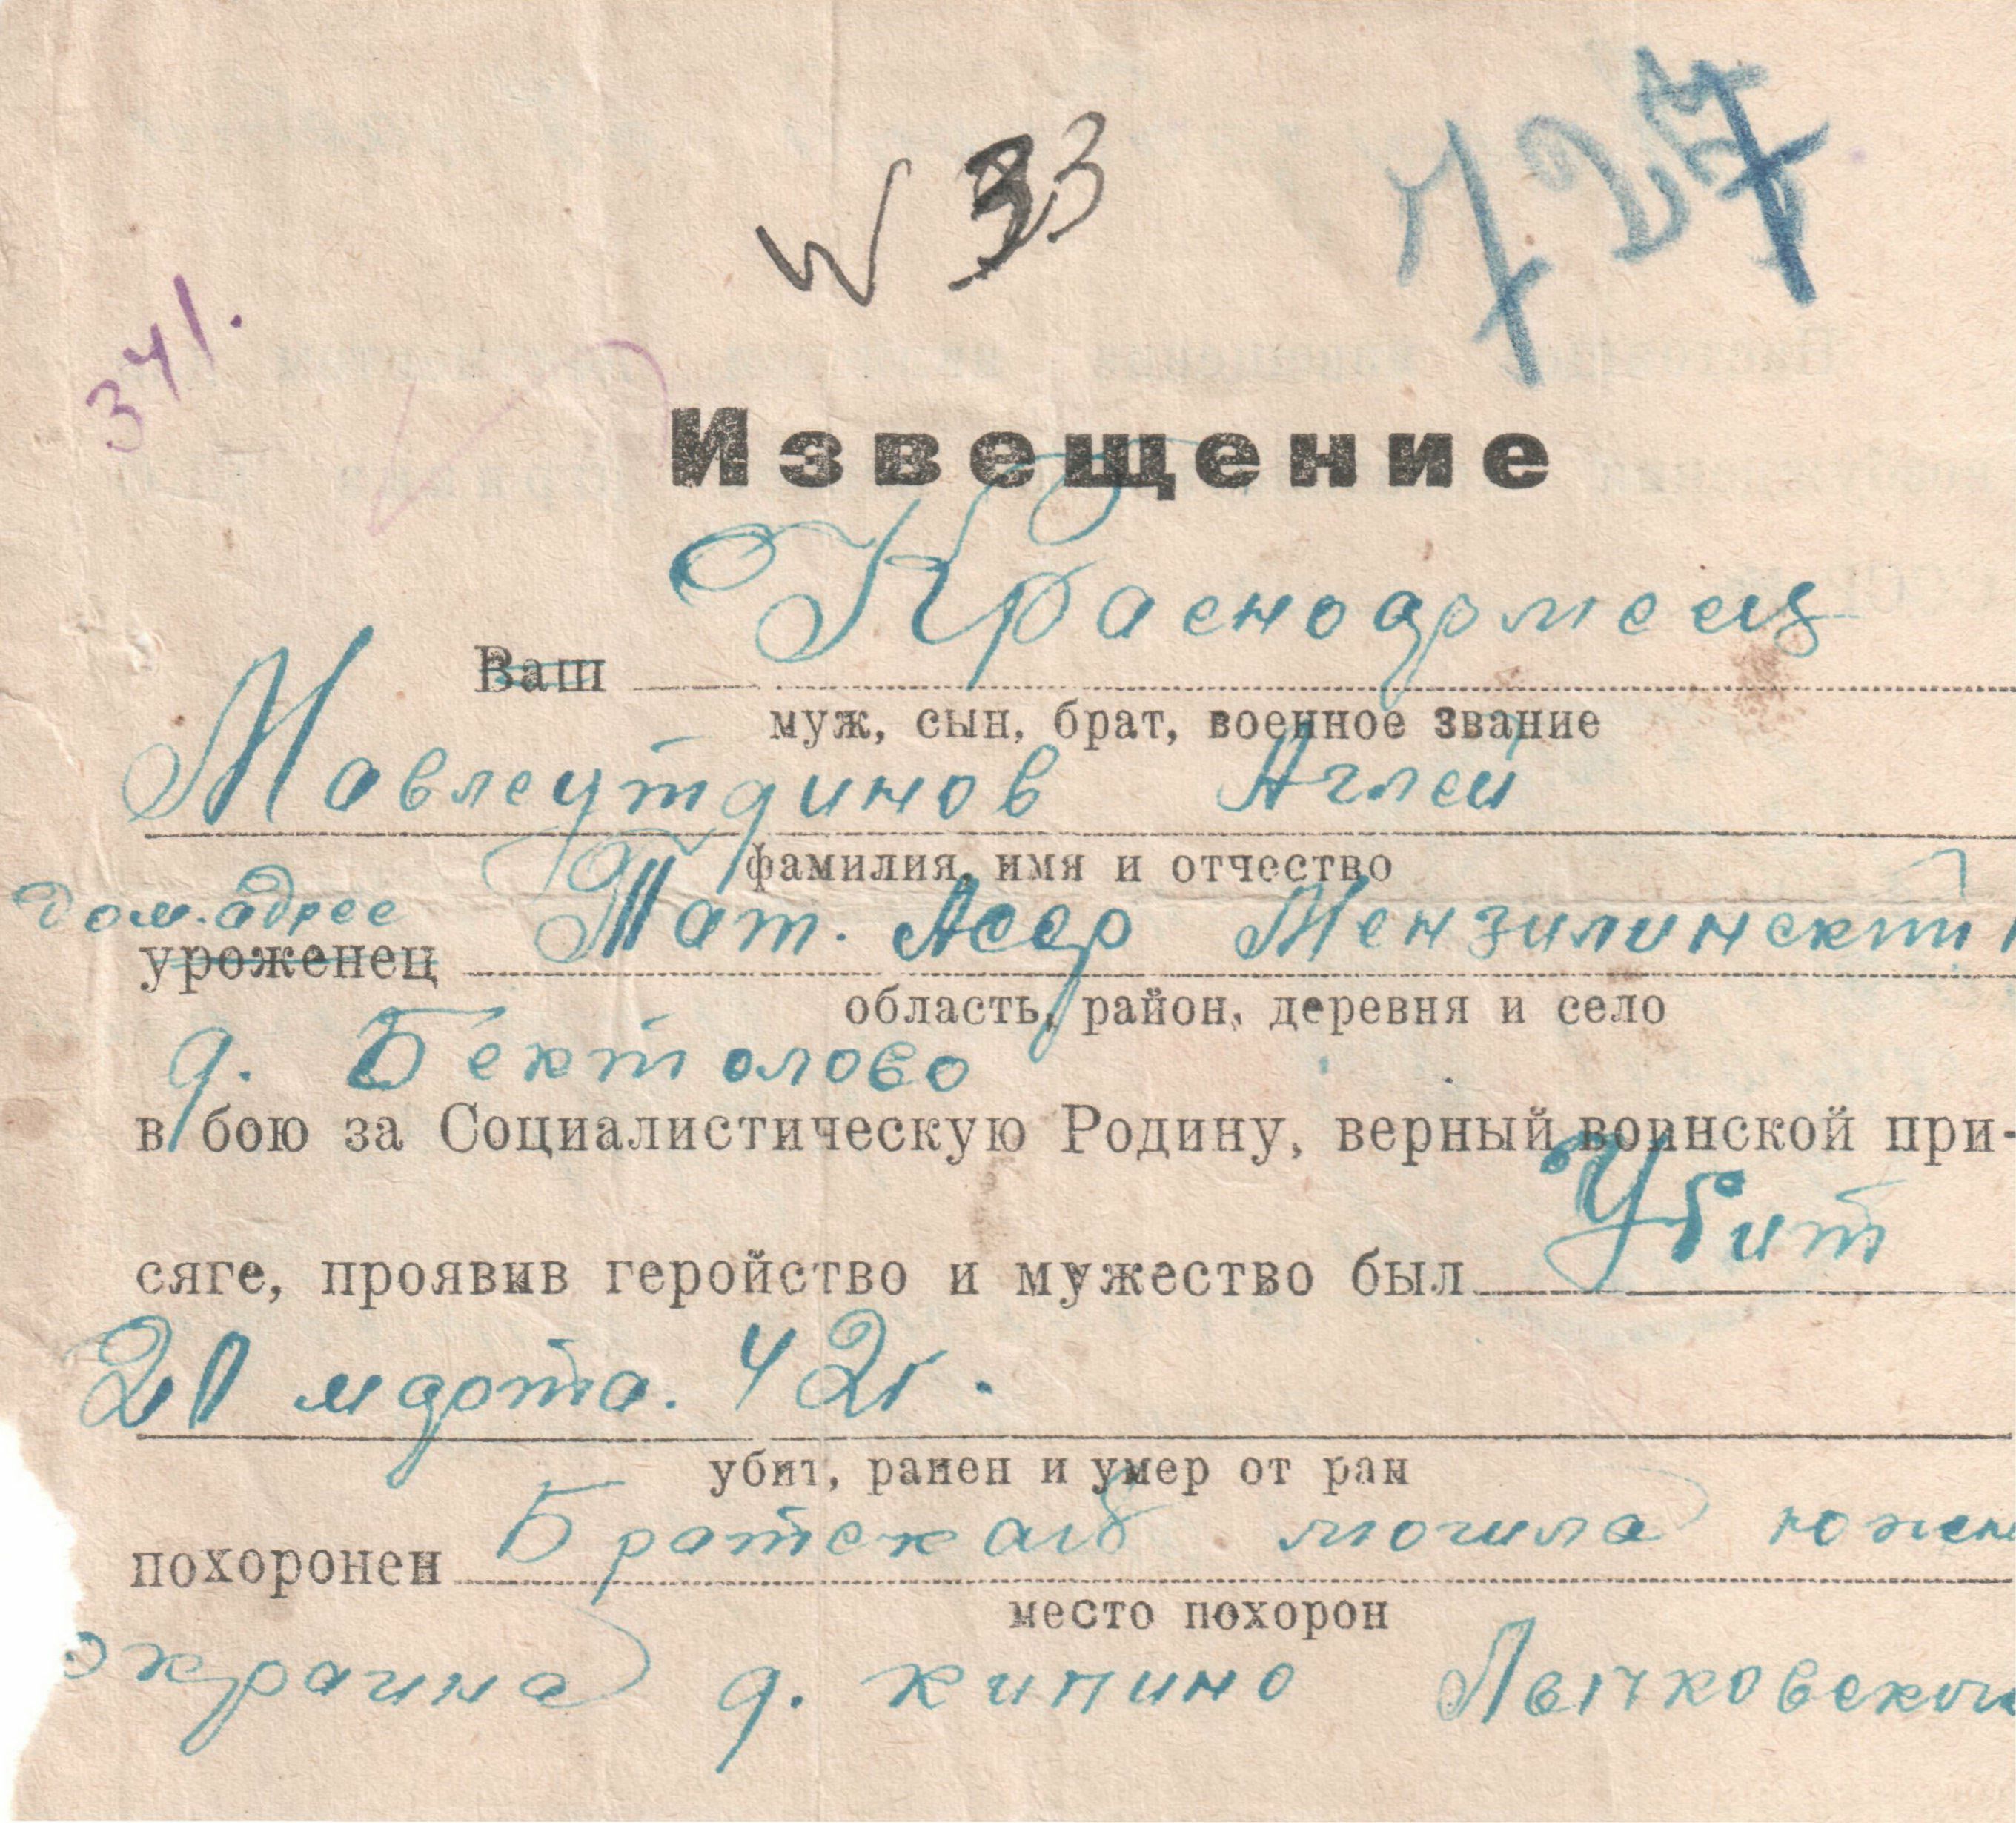 727
N 33
341.
Извещение
Красноармеец
Ваш
муж, сын, брат, военное звание
Мавлеутдинов Аглей
фамилия, имя и отчество
дом. адрес Тат. Асср Мензилинский
уроженец
область, район, деревня и село
д. Бектолово
в бою за Социалистическую Родину, верный воинской при-
сяге, проявив геройство и мужество был Убит
20 марта. 42г.
убит, ранен и умер от ран
похоронен Братская могила южн
место похорон
окраина д. Кипино Лычковского